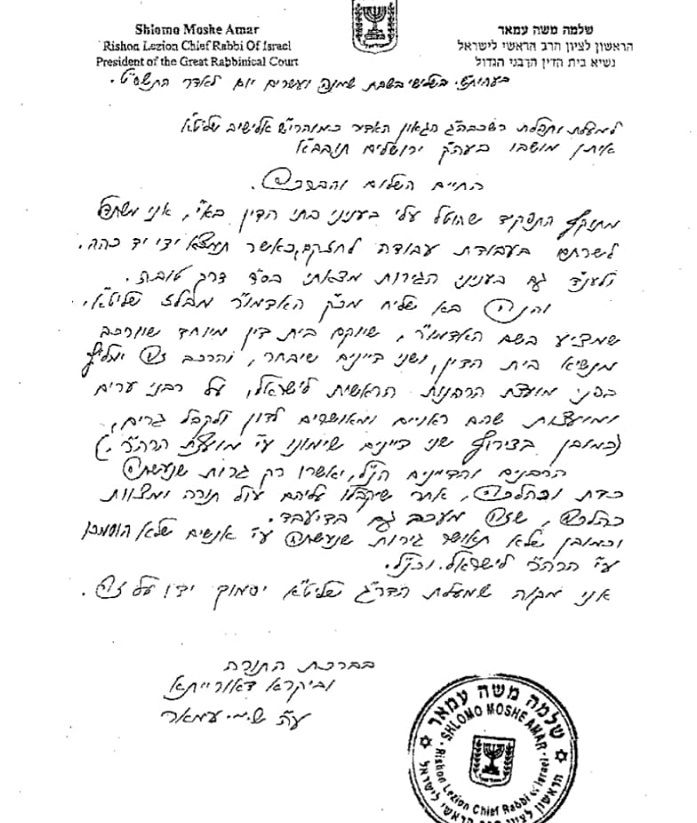 Shlomo Moshe Amar
Rishon Lezion Chief Rabbi Of Israel
President of the Great Rabbinical Court
שלמה משה עמאר
הראשון לציון הרב הראשי לישראל
נשיא בית הדין הרבני הגדול
בעהית"ש. בשלישי בשבת שמונה ועשרים יום לאדר התשס"ט.
למעלת ותפלת רשכבה"ג הגאון האדיר כמוהרי"ש אלישיב שליט"א
איתן מושבו בעה"ק ירושלים תובב"א
החיים השלום והברכה.
מתוקף התפקיד שהוטל עלי בעניני בתי הדין בא"י, אני משתדל
לשרתם בעבודת עבודה לחזקם, כאשר תמצא ידי יד כהה.
ולענ"ד גם בעניני הגירות מצאתי בס"ד דרך טובה.
והנה בא שליח מכ"ק האדמו"ר מבעלז שליט"א,
שמציע בשם האדמו"ר, שיוקם בית דין מיוחד שיורכב
מנשיא בית הדין, ושני דיינים שיבחר, והרכב זה ימליץ
בפני מועצת הרבנות הראשית לישראל, על רבני ערים
ומועצות שהם ראויים ומאושרים לדון ולקבל גרים,
(כמובן בצירוף שני דיינים שימונו ע"י מועצת הרה"ר.)
הרבנים והדיינים הנ"ל, יאשרו רק גרות שנעשתה
כדת וכהלכה, אחר שיקבלו עליהם עול תורה ומצוות
כהלכה, שזה מעכב גם בדיעבד.
וכמובן שלא תאושר גירות שנעשתה ע"י אנשים שלא הוסמכו
ע"י הרה"ר לישראל. וכנ"ל.
אני מקוה שמעלת הדר"ג שליט"א יסמוך ידו על זה.
בברכת התורה
וביקרא דאורייתא
ע"ה ש.מ. עמאר
שלמה משה עמאר
SHLOMO MOSHE AMAR
Rishon Lezion Chief Rabbi of Israel
הראשון לציון הרב הראשי לישראל